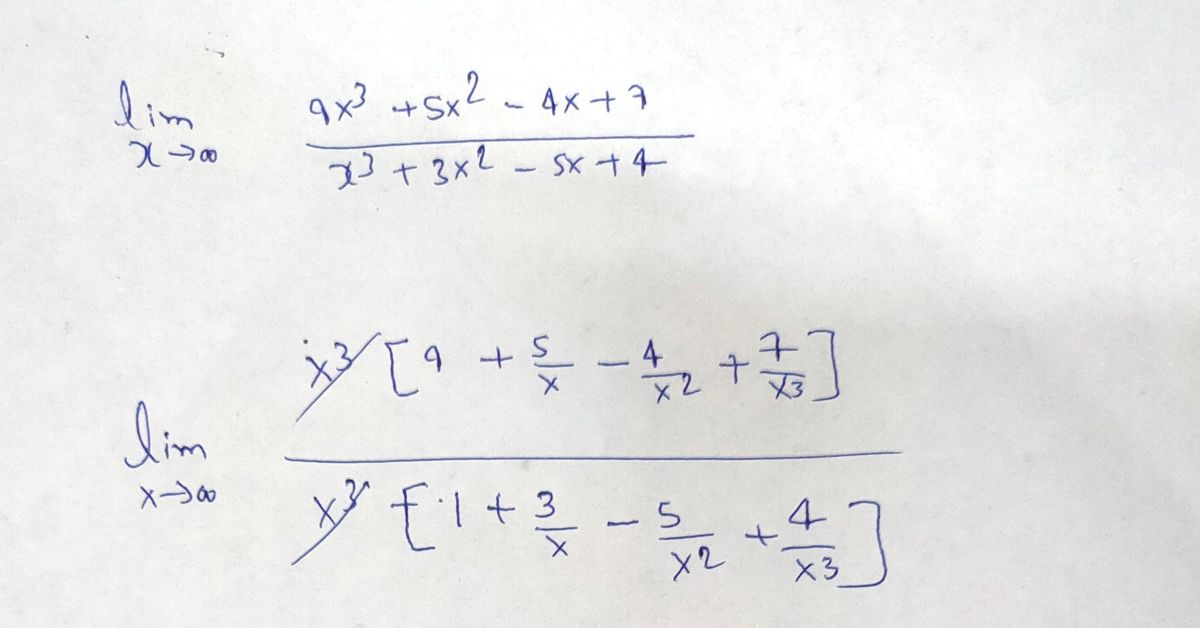 lim 9x³ + 5x² - 4x + 7
x→∞ x³ + 3x² - 5x + 4
x³ [9 + 5/x - 4/x² + 7/x³]
lim
x→∞
x³ [1 + 3/x - 5/x² + 4/x³]